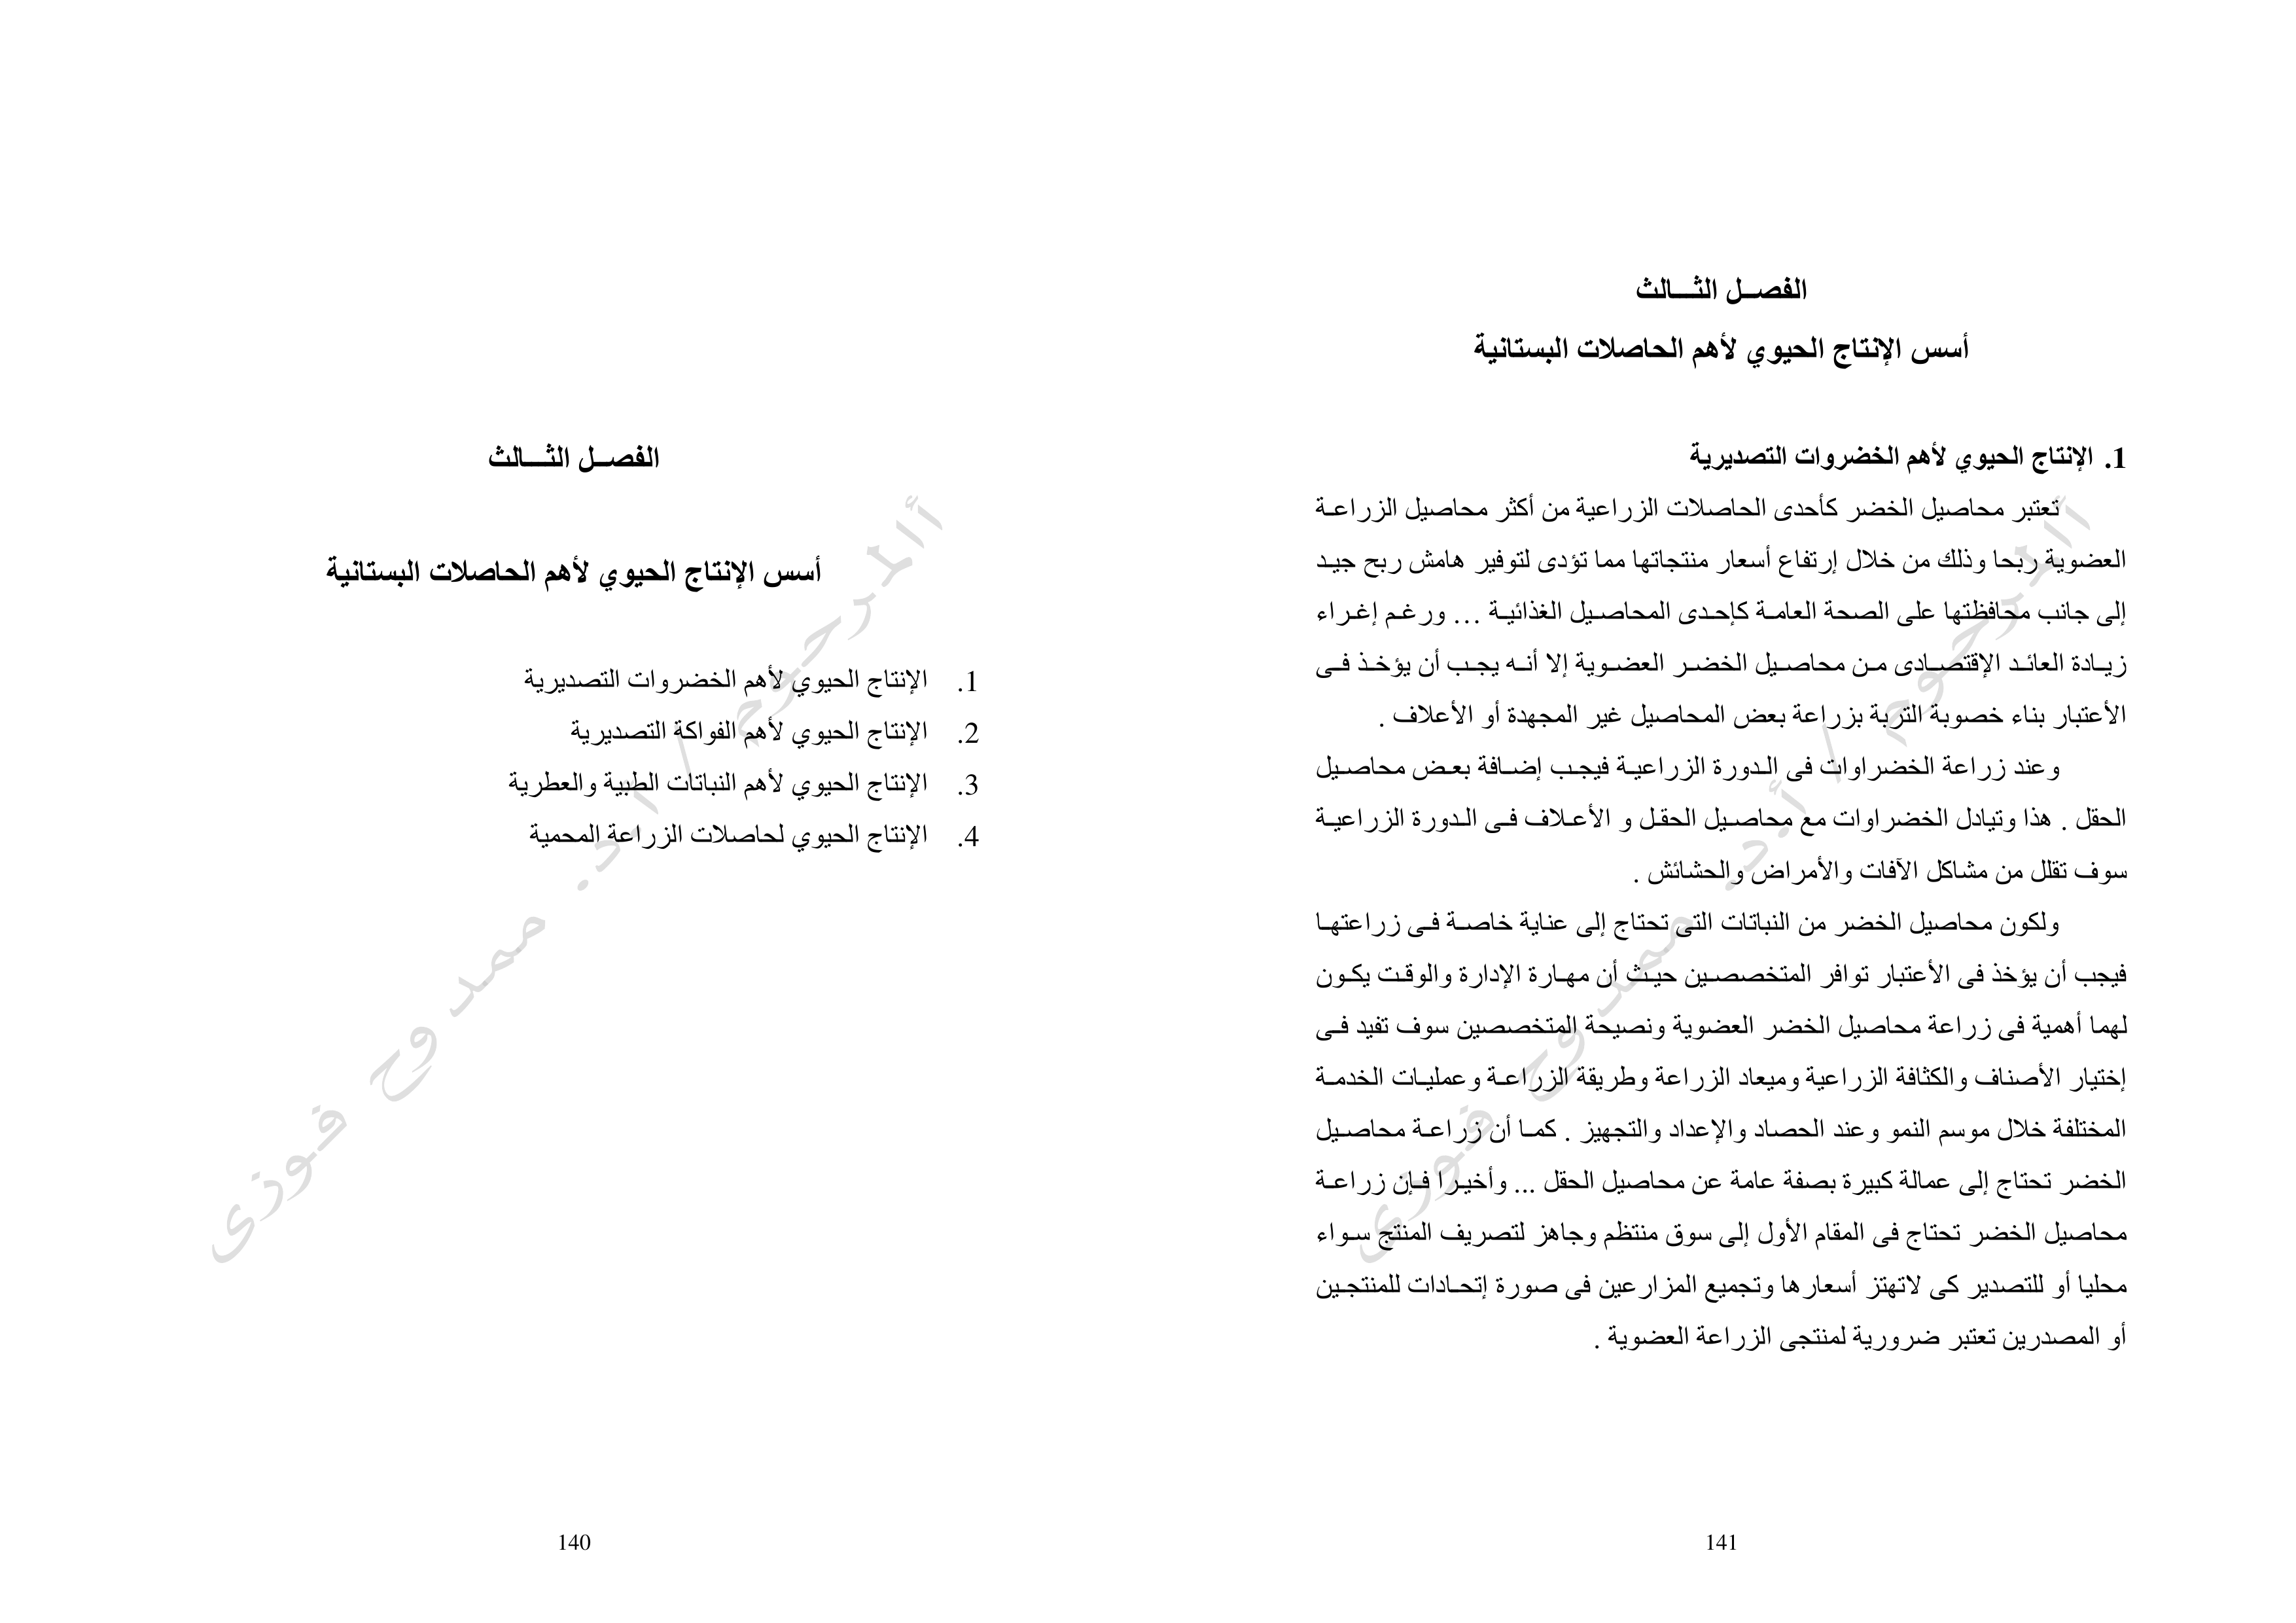 الفصــل الثــــالث
أسس الإنتاج الحيوي لأهم الحاصلات البستانية
1. الإنتاج الحيوي لأهم الخضروات التصديرية
2. الإنتاج الحيوي لأهم الفواكة التصديرية
3. الإنتاج الحيوي لأهم النباتات الطبية والعطرية
4. الإنتاج الحيوي لحاصلات الزراعة المحمية
المرحوم / أ.د. ممدوح فوزى
140
الفصــل الثــــالث
أسس الإنتاج الحيوي لأهم الحاصلات البستانية
1. الإنتاج الحيوي لأهم الخضروات التصديرية
تعتبر محاصيل الخضر كأحدى الحاصلات الزراعية من أكثر محاصيل الزراعـة
العضوية ربحا وذلك من خلال إرتفاع أسعار منتجاتها مما تؤدى لتوفير هامش ربح جيـد
إلى جانب محافظتها على الصحة العامـة كإحـدى المحاصـيل الغذائيـة ... ورغـم إغـراء
زيـادة العائـد الإقتصـادى مـن محاصـيل الخضـر العضـوية إلا أنـه يجـب أن يؤخـذ فـى
الأعتبار بناء خصوبة التربة بزراعة بعض المحاصيل غير المجهدة أو الأعلاف .
وعند زراعة الخضراوات فى الـدورة الزراعيـة فيجـب إضـافة بعـض محاصـيل
الحقل . هذا وتيادل الخضراوات مع محاصـيل الحقـل و الأعـلاف فـى الـدورة الزراعيـة
سوف تقلل من مشاكل الآفات والأمراض والحشائش .
ولكون محاصيل الخضر من النباتات التى تحتاج إلى عناية خاصـة فـى زراعتهـا
فيجب أن يؤخذ فى الأعتبار توافر المتخصصـين حيـث أن مهـارة الإدارة والوقـت يكـون
لهما أهمية فى زراعة محاصيل الخضر العضوية ونصيحة المتخصصين سوف تفيد فـى
إختيار الأصناف والكثافة الزراعية وميعاد الزراعة وطريقة الزراعـة وعمليـات الخدمـة
المختلفة خلال موسم النمو وعند الحصاد والإعداد والتجهيز . كمـا أن زراعـة محاصـيل
الخضر تحتاج إلى عمالة كبيرة بصفة عامة عن محاصيل الحقل ... وأخيـرا فـإن زراعـة
محاصيل الخضر تحتاج فى المقام الأول إلى سوق منتظم وجاهز لتصريف المنتج سـواء
محليا أو للتصدير كى لاتهتز أسعارها وتجميع المزارعين فى صورة إتحـادات للمنتجـين
أو المصدرين تعتبر ضرورية لمنتجى الزراعة العضوية .
المرحوم / أ.د. ممدوح فوزى
141